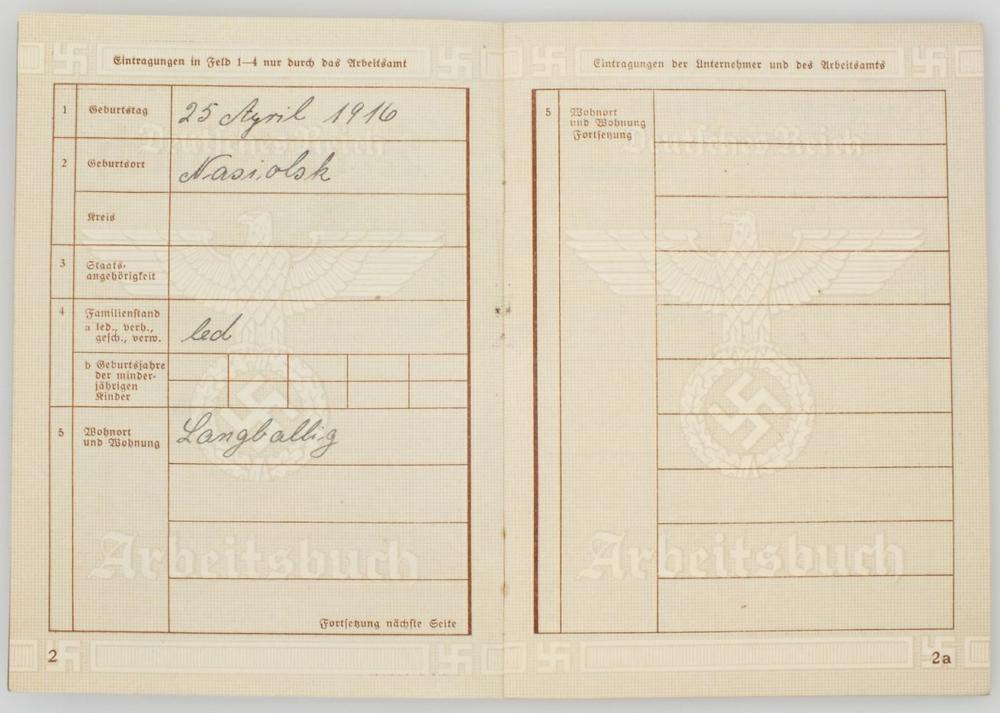 Eintragungen in Feld 1—4 nur durch das Arbeitsamt
1 Geburtstag 25 April 1916
2 Geburtsort Nasiolsk
Kreis
3 Staats-
angehörigkeit
4 Familienstand
a led., verh.,
gesch., verw. led
b Geburtsjahre
der minder-
jährigen
Kinder
5 Wohnort
und Wohnung Langballig
Fortsetzung nächste Seite
Deutsches Reich
Arbeitsbuch
2
Eintragungen der Unternehmer und des Arbeitsamts
5 Wohnort
und Wohnung
Fortsetzung
Deutsches Reich
Arbeitsbuch
2a